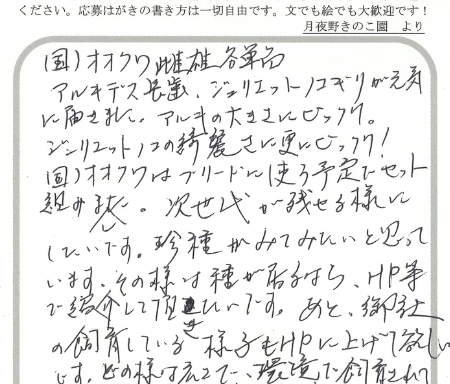 ください。応募はがきの書き方は一切自由です。文でも絵でも大歓迎です!
月夜野きのこ園 より
(国)オオクワ雌雄各単品
アルキデス長歯、ジュリエットノコギリが元気
に届きました。アルキの大きさにビックリ。
ジュリエットノコの綺麗さに更にビックリ!
(国)オオクワはブリードに使う予定でセット
組みました。次世代が残せる様に
したいです。珍種がみてみたいと思って
います。その様な種が居るなら、HP等
で紹介して頂きたいです。あと、御社
の飼育している様子もHPに上げて欲しい
です。どの様な工で、環境で飼育されて